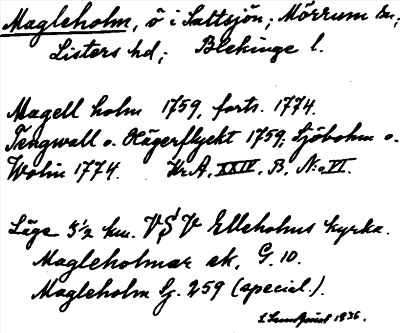 Magleholm, ö i Saltsjön; Mörrum sn;
Listers hd; Blekinge l.
Magell holm 1759, forts. 1774.
Tengwall o. Hägerflykt 1759; Sjöbohm o.
Wolin 1774. Kr.A. XXIV. B. N:o VI.
Läge 3½ km. VSV Elleholms kyrka.
Magleholmar ek. G. 10.
Magleholm Sj. 259 (special.).
1936.